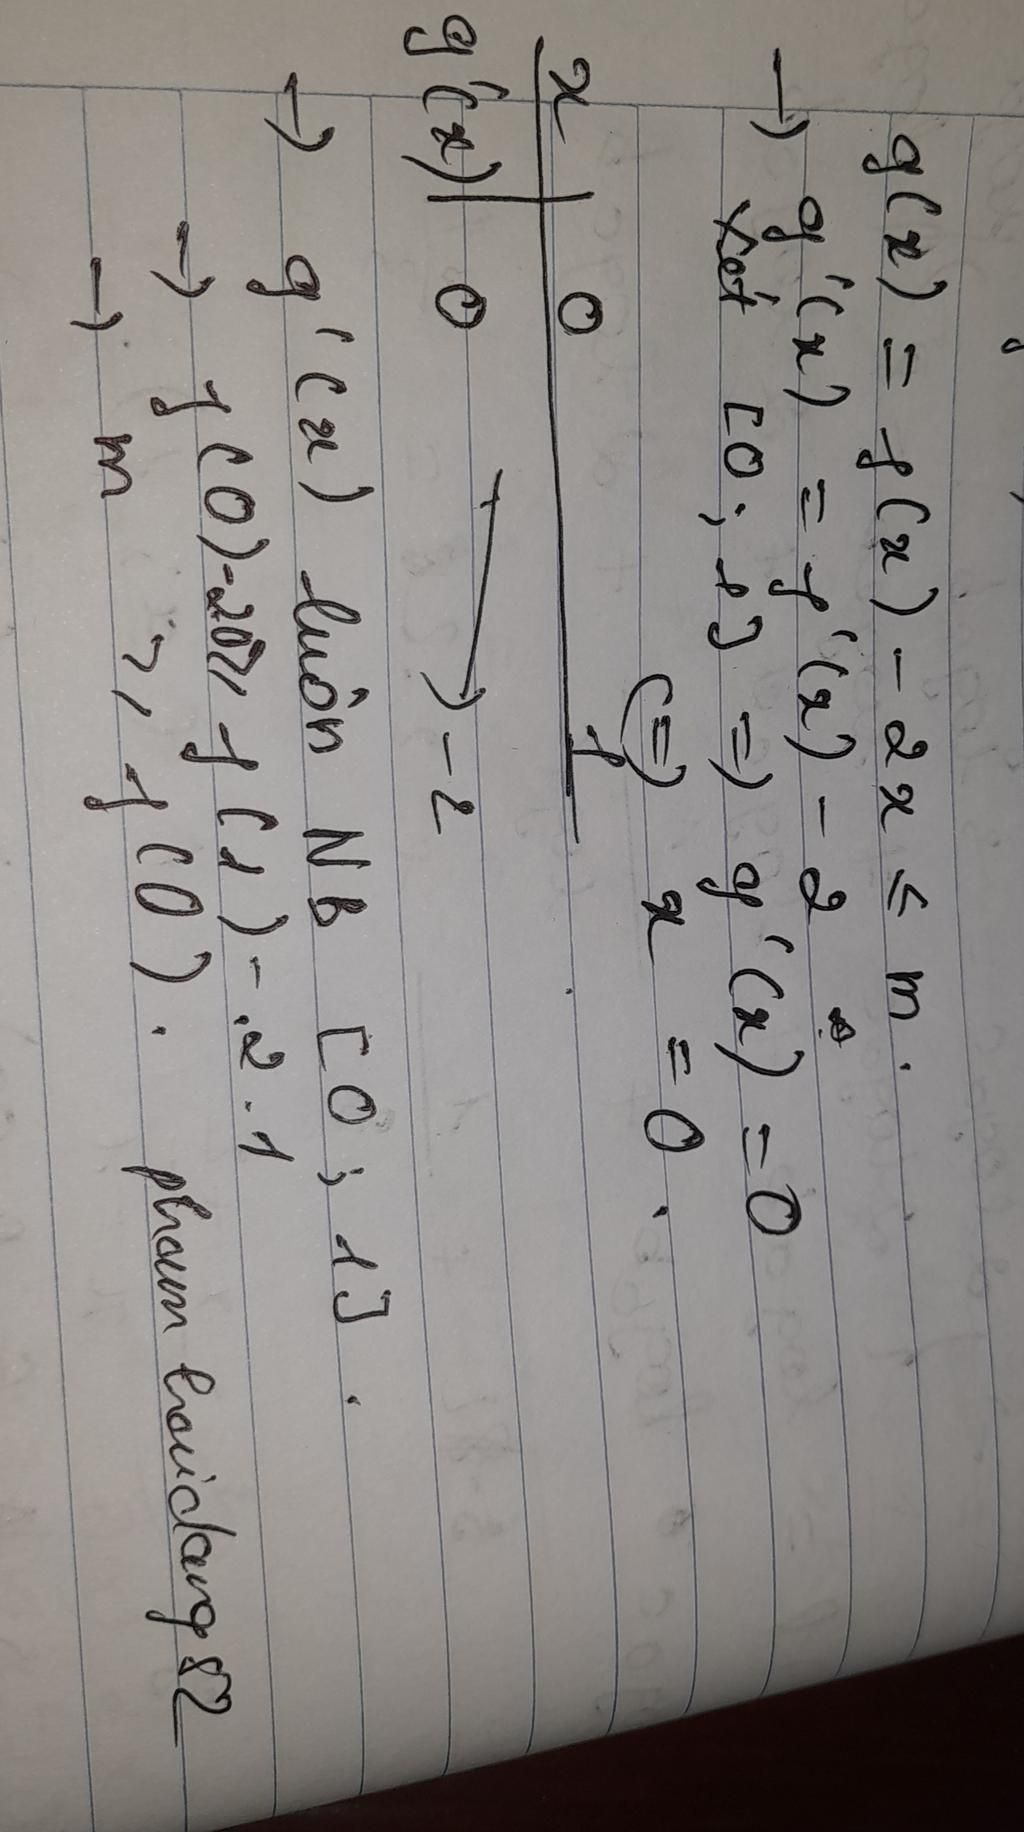 g(x) = f(x) - 2x ≤ m.
→ g'(x) = f'(x) - 2
Xét [0; 1] => g'(x) = 0
<=> x = 0.
x 0 1
g'(x) 0 -2
→ g'(x) luôn NB [0; 1].
→ f(0)-2.0 ≥ f(1) - .2.1
→ m ≥ f(0). phamhaidang82